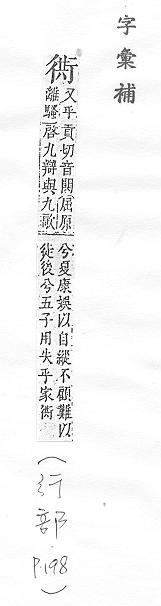 字彙補
衖
又乎貢切音閧屈原
離騷啓九辯與九歌
兮夏康娛以自縱不顧難以
圖後兮五子用失乎家衖
(行部. P.198)